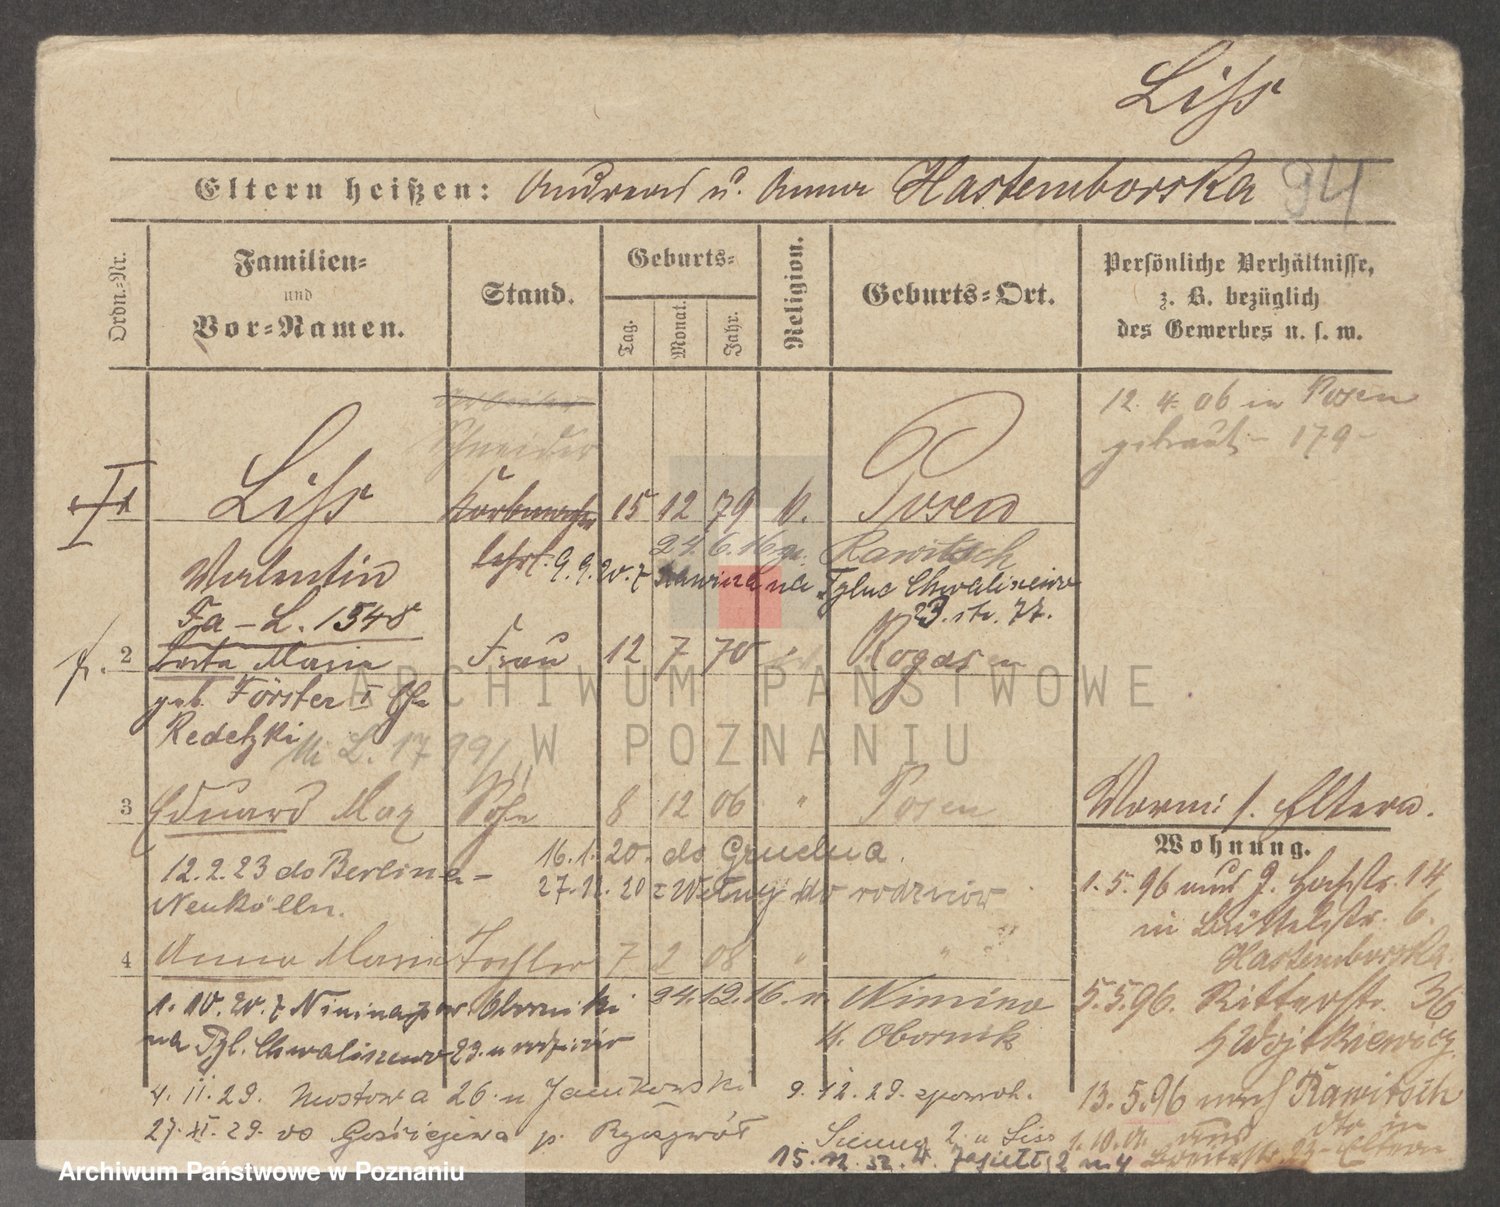 Liss
Eltern heißen: Andreas u. Anna Hastemborska 94
Ordn.-Nr. Familien- und Vor-Namen. Stand. Geburts- Tag. Monat. Jahr. Religion. Geburts-Ort. Persönliche Verhältnisse, z. B. bezüglich des Gewerbes u. s. w.
Arbeiter 12. 4. 06 in Posen
Schneider getraut 179
1 Liss Korbmacher 15 12 79 k. Posen
24. 6. 16 Rawitsch
Valentin 9. 9. 20. z na Tylne Chwaliszewo
Fa - L. 1548 23. 77.
2 Maria Frau 12 7 70 Rogasen
geb. Förster I Ehe
Redetzki
L. 1799
3 Eduard Max Sohn 8 12 06 " Posen Vorm: s. Eltern.
Wohnung.
16. 1. 20. do Grudna.
12. 2. 23 do Berlina - 27. 11. 20 z Wełny do rodziców 1. 5. 96 14
Neukölln. in Büttelstr. 6.
Hastemborska
4 Anna Maria Tochter 7 2 08 " " "
1. 10. 20. z Ninina pow. Oborniki 24. 12. 16. n. Ninino 5. 5. 96. Ritterstr. 36
na Tyl. Chwaliszewo 23. u rodziców K. Obornik b Wojtkiewicz
4. II. 29. Mostowa 26. u Jankowski 9. 12. 29. 13. 5. 96 nach Rawitsch
27. XI. 29. do p. Ryczywół 2. u Liss 1. 10. in
15. 12. 32. 2 m 4 Breitestr. 23 - Eltern
ARCHIWUM PAŃSTWOWE
W POZNANIU
Archiwum Państwowe w Poznaniu